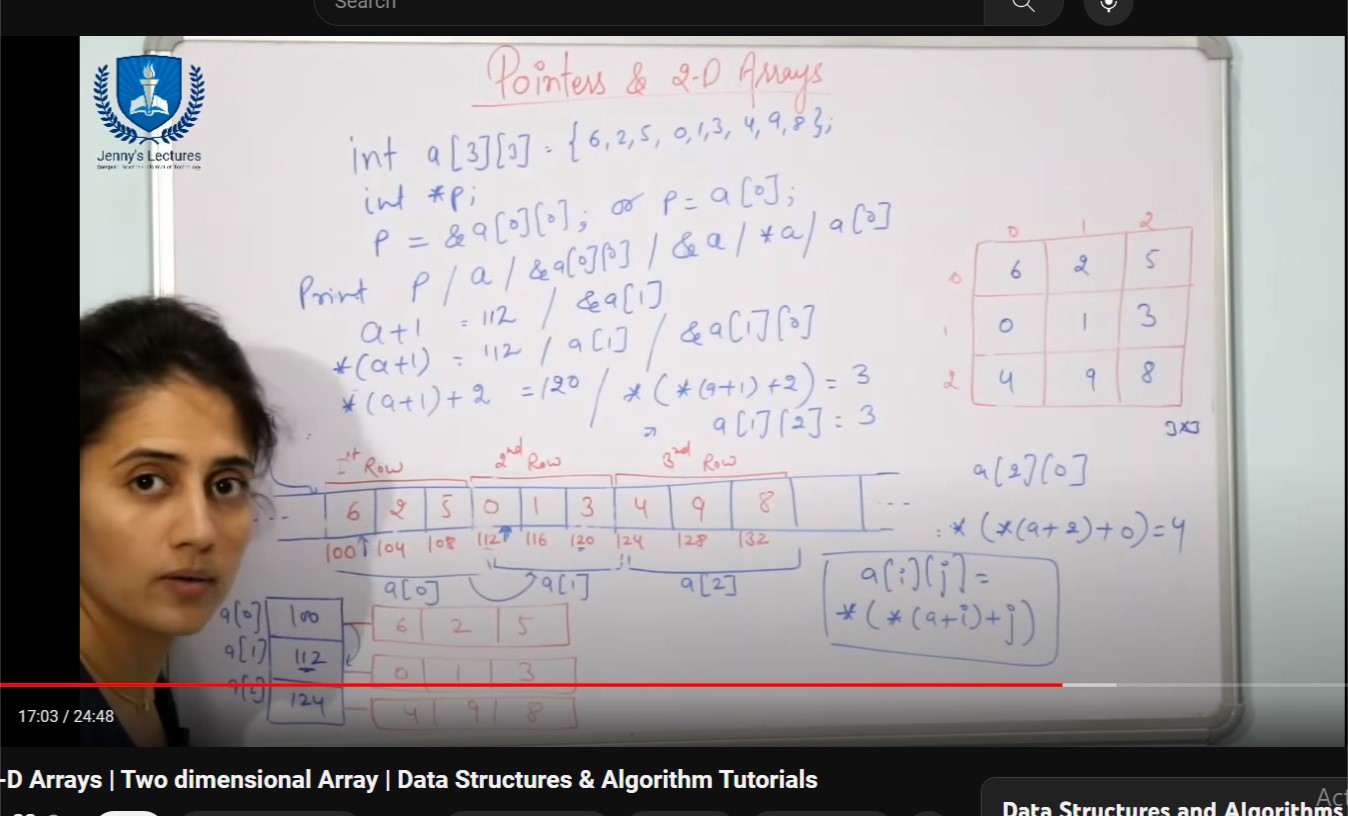 Search
Jenny's Lectures
Pointers & 2-D Arrays
int a[3][3] = {6,2,5, 0,1,3, 4,9,8};
int *p;
P = &a[0][0]; or P = a[0];
Print P / a / &a[0][0] / &a / *a / a[0]
a+1 = 112 / &a[1]
*(a+1) = 112 / a[1] / &a[1][0]
*(a+1)+2 = 120 / *(*(a+1)+2) = 3
a[1][2] = 3
0 1 2
0 6 2 5
1 0 1 3
2 4 9 8
3x3
1st Row 2nd Row 3rd Row
--- 6 2 5 0 1 3 4 9 8 ---
100 104 108 112 116 120 124 128 132
a[0] a[1] a[2]
a[2][0]
: *(*(a+2)+0)=4
a[i][j] =
*(*(a+i)+j)
a[0] 100 6 2 5
a[1] 112 0 1 3
a[2] 124 4 9 8
17:03 / 24:48
-D Arrays | Two dimensional Array | Data Structures & Algorithm Tutorials
Data Structures and Algorithms